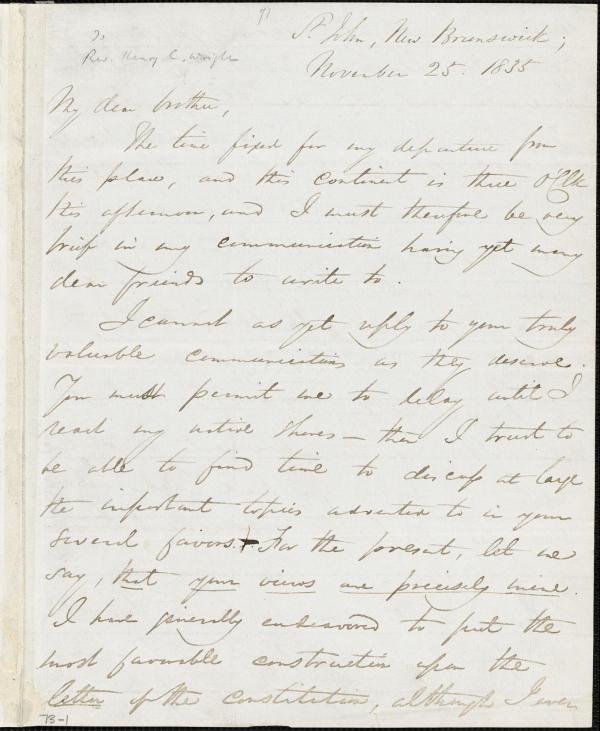 71
To
Rev. Henry C. Wright
St. John, New Brunswick;
November 25. 1835
My dear brother,
The time fixed for my departure from
this place, and this continent is three o'Clk
this afternoon, and I must therefore be very
brief in my communication having yet many
dear friends to write to.
I cannot as yet reply to your truly
valuable communications as they deserve.
You must permit me to delay until I
reach my native shores — then I trust to
be able to find time to discuss at large
the important topics adverted to in your
several favors. For the present, let me
say, that your views are precisely mine.
I have generally endeavored to put the
most favourable construction upon the
letter of the constitution, although I even
73-1